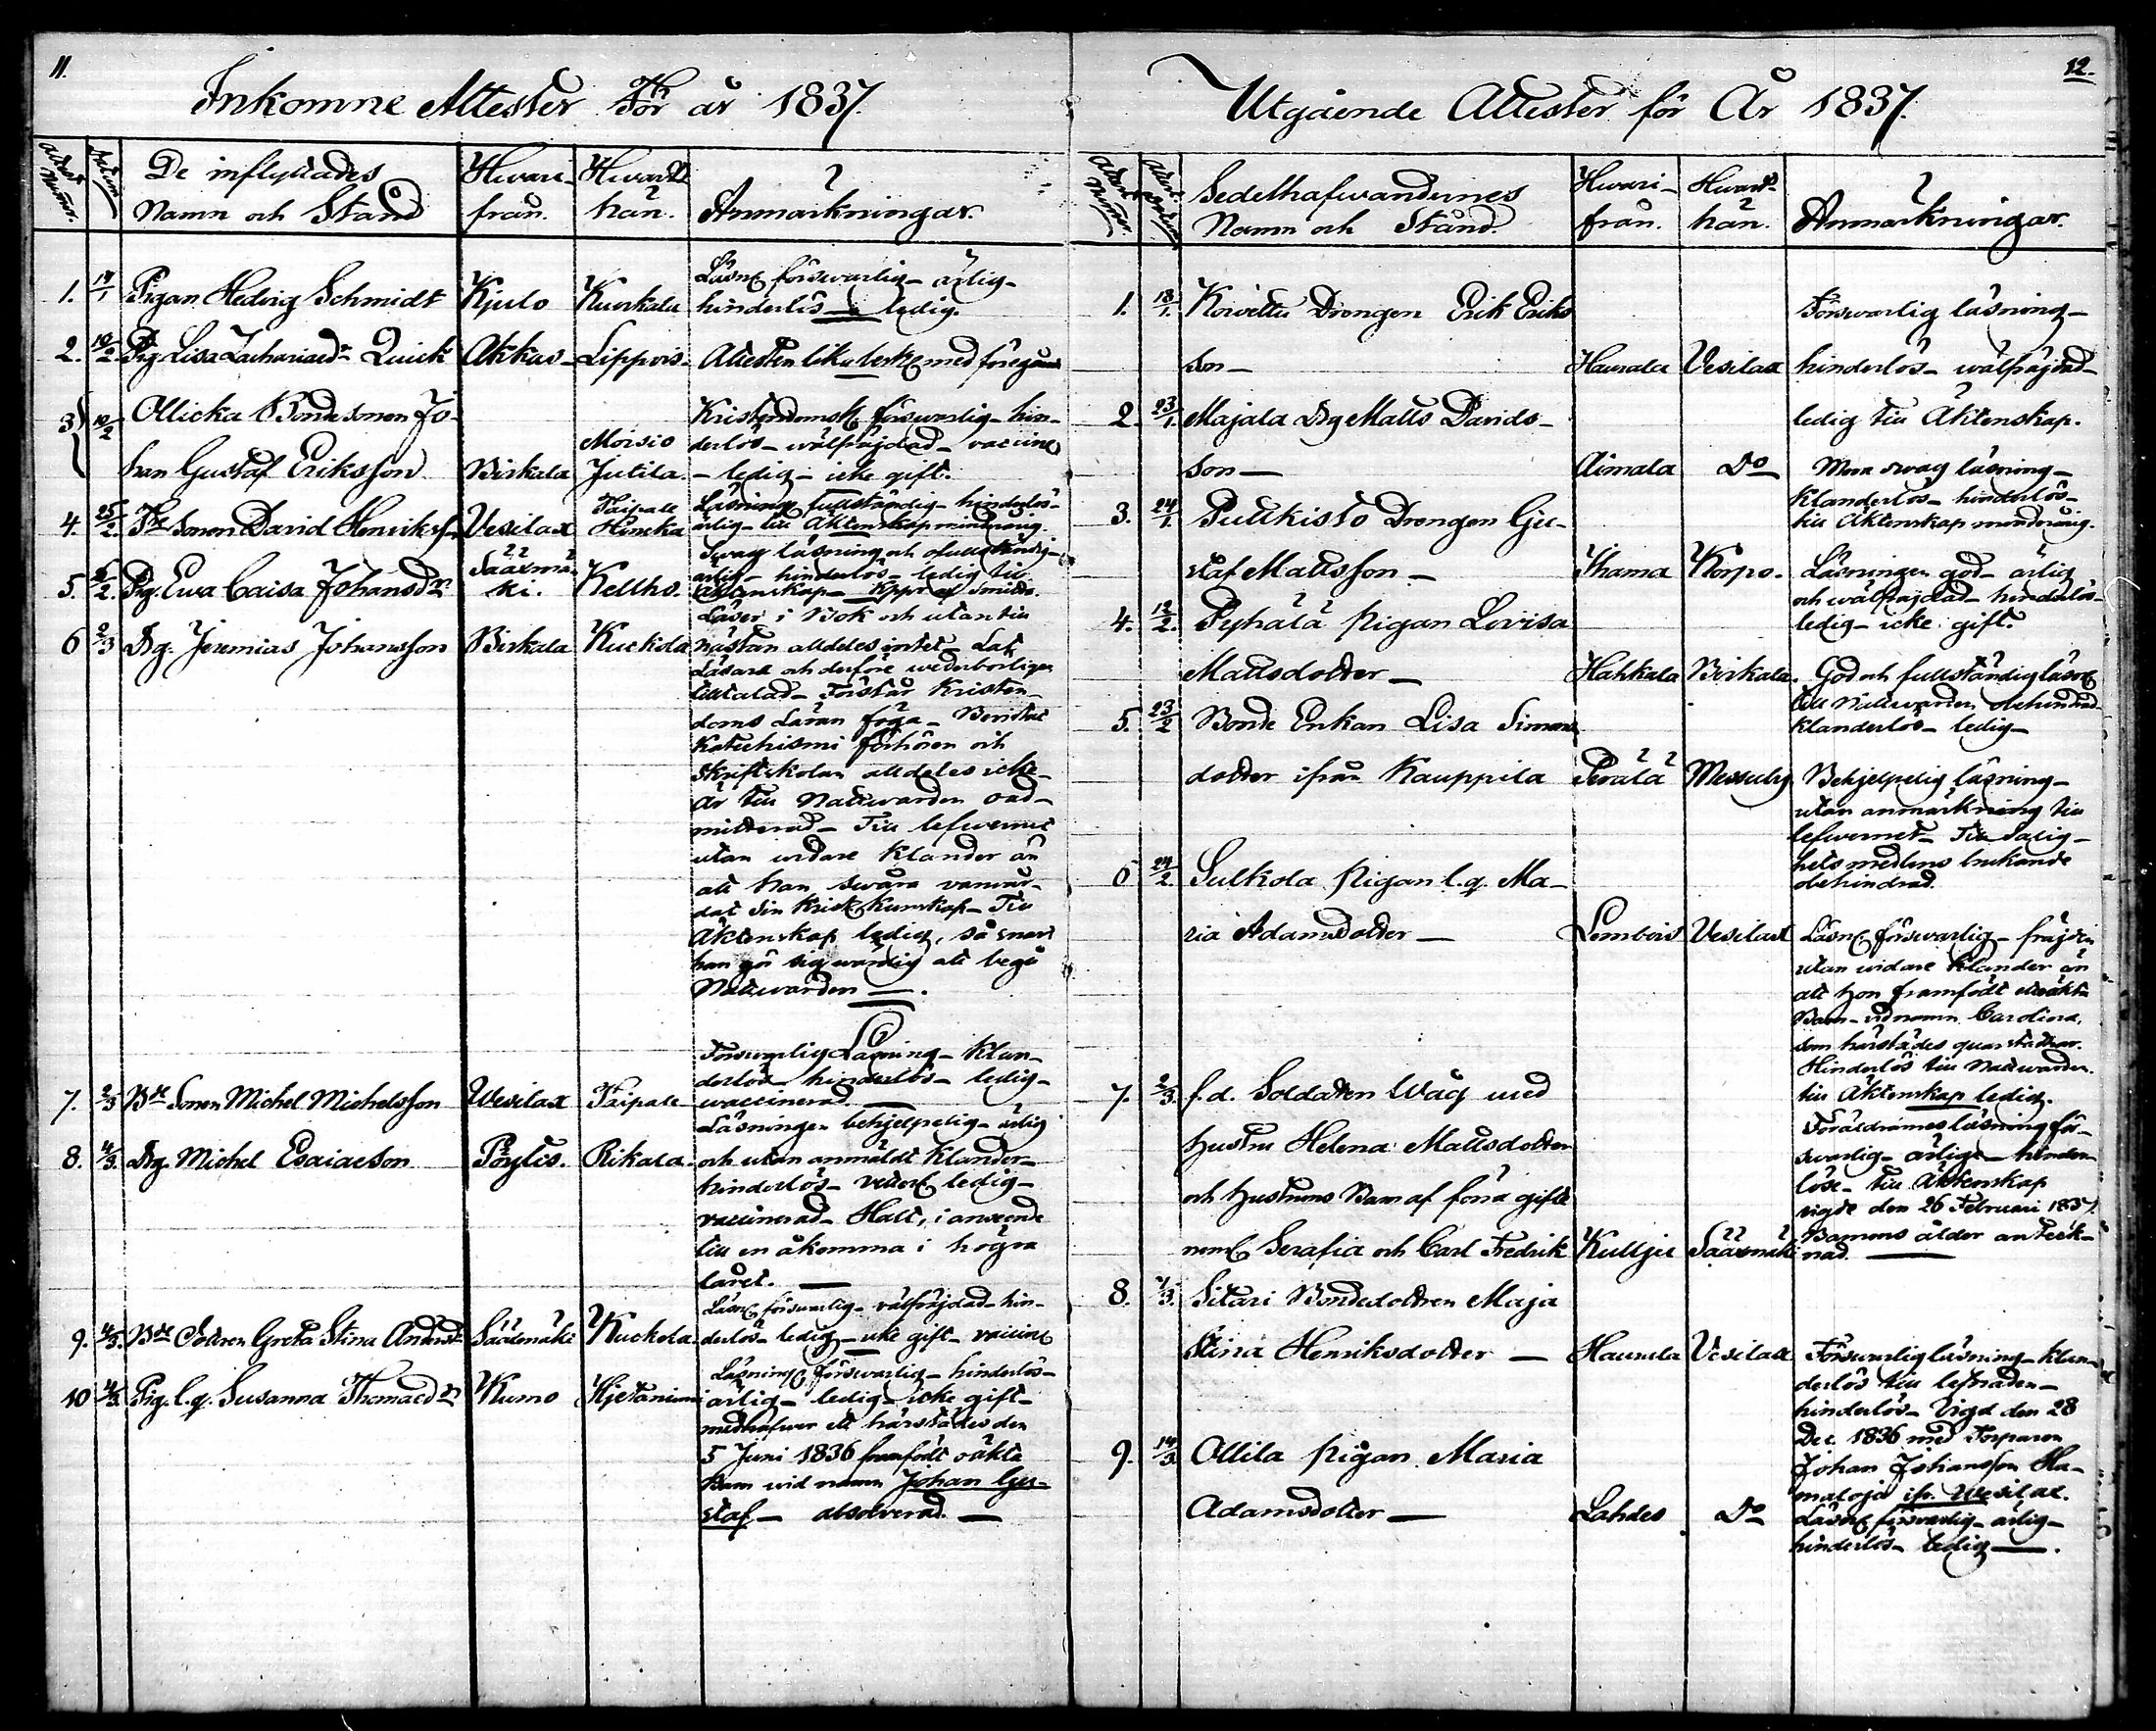 11.
Inkomne Attester För år 1837.
Attest Numer.
Datum
De inflyttades
Namn och Stånd
Hwari-
från.
Hwart-
hän.
Anmärkningar.
1. 17/1 Pigan Hedvig Schmidt Kjulo Kurkala
Läsn. försvarlig - ärlig -
hinderlös - ledig.
2. 10/2 Pig. Lisa Zachariaedr Quick Akkas Lippois.
Attesten lika med föreg.
3 10/2 Ollicka Bondesonen Jo-
han Gustaf Eriksson. Birkala
Moisio
Jutila.
Kristendomsk. försvarlig - hin-
derlös - wälfräjdad - vaccine
- ledig - icke gift.
4. 25/2. Bde Sonen David Henriksson Vesilax
Taipale
Hincka
Läsning fullständig - hinderlös -
ärlig - till Äktenskap minderårig.
5. 2. Pig. Ewa Caisa Johansdr
Säärmä-
ki. Kellho.
Swag läsning och ofullständig -
ärlig - hinderlös - ledig till
Äktenskap -
6 2/3 Dg. Jeremias Johansson Birkala Kuckola
Läser i Bok och utantill
nästan alldeles intet - Lat
Läsare och derföre wederbörligen
tilltalad - Förstår Kristen-
doms Läran föga - Bevistat
Katechismi förhören och
Skriftskolan alldeles icke -
är till Nattwarden oad-
mitterad - Till lefwernet
utan widare Klander än
att han swåra vanwår-
dat Sin Krist. Kunskap - Till
Äktenskap ledig, så snart
han gör sig wärdig att begå
Nattwarden -.
7. 2/3 Bde Sonen Michel Michelsson Wesilax Taipale
Forswarlig Läsning - Klan-
derlös - hinderlös - ledig -
waccinerad.
8. 4/3. Dg. Michel Esaiaeson Pöytis. Rikala.
Läsningen behjelpelig - ärlig
och utan anmäldt Klander -
hinderlös - ledig -
vaccinerad - Halt, i anseende
till en åkomma i högra
låret. -
9. 4/3. Bde Dottren Greta Stina Andersdr Säärmäki Kuckola.
Läsn. försvarlig - välfräjdad - hin-
derlös - ledig - icke gift - vaccine
10 4/3. Pig. l.q. Susanna Thomaedr Kumo Hjetaniemi
Läsning. försvarlig - hinderlös -
ärlig - ledig - icke gift -
medhafwer ett härstädes den
5 Juni 1836 framfödt oäkta
Barn wid namn Johan Gus-
staf - absolverad. -
12.
Utgående Attester för År 1837.
Attest Numer.
Attest. Datum
Sedelhafwandernes
Namn och Stånd.
Hwari-
från.
Hwart-
hän.
Anmärkningar.
1. 18/1. Koivettu Drengen Erik Eriks
son - Haurala Vesilax
Försvarlig läsning -
hinderlös - wälfräjdad -
ledig till Äktenskap.
2. 23/1. Majala Dg Matts Davids-
son - Aimala Do
swag läsning -
Klanderlös - hinderlös -
till Äktenskap minderårig.
3. 24/1. Pullkisto Drengen Gu-
staf Mattsson - Thama Korpo.
Läsningen god - ärlig
och wälfräjdad - hinderlös -
ledig - icke gift.
4. 12/2. Pyhälä Pigan Lovisa
Mattsdotter - Hahkala Birkala.
God och fullständig läsn.
till Nattwarden obehindrad
Klanderlös - ledig -
5. 23/2 Bonde Enkan Lisa Simons
dotter ifrån Kauppila Perälä Messuby
Behjelpelig läsning -
utan anmärkning till
lefwernet - Till Salig-
hets medlens brukande
obehindrad.
6 24/2. Sulkola Pigan l.q. Ma-
ria Adamsdotter - Lembois Vesilax
Läsn. försvarlig - fräjden
utan widare Klander än
att hon framfödt ett oäkta
Barn - vid namn Carolina,
som härstädes quarstadnar.
Hinderlös till Nattwarden.
till Äktenskap ledig.
7. 2/3. f.d. Soldaten Wåg med
hustru Helena Mattsdotter
och hustruns Barn af förra gifte
neml. Serafia och Carl Fredrik Kullja Säärmäki
Föräldrarnes läsning för-
swarlig - ärlige - hinder-
löse - till Äktenskap
vigde den 26 Februari 1837.
Barnens ålder anteck-
nad. -
8. 7/3. Sitari Bondedottren Maja
Stina Henriksdotter - Haurala Vesilax
Försvarlig läsning - Klan-
derlös till lefnaden -
hinderlös - Vigd den 28
Dec. 1836 med Torparen
Johan Johansson Ha-
maloja ifr. Wesilax.
9. 14/3 Ollila Pigan Maria
Adamsdotter - Lahdes Do
Läsn. försvarlig - ärlig -
hinderlös - ledig -.